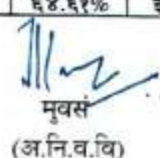 ६४.६१%
मुवसं
(अ.नि.व.वि)